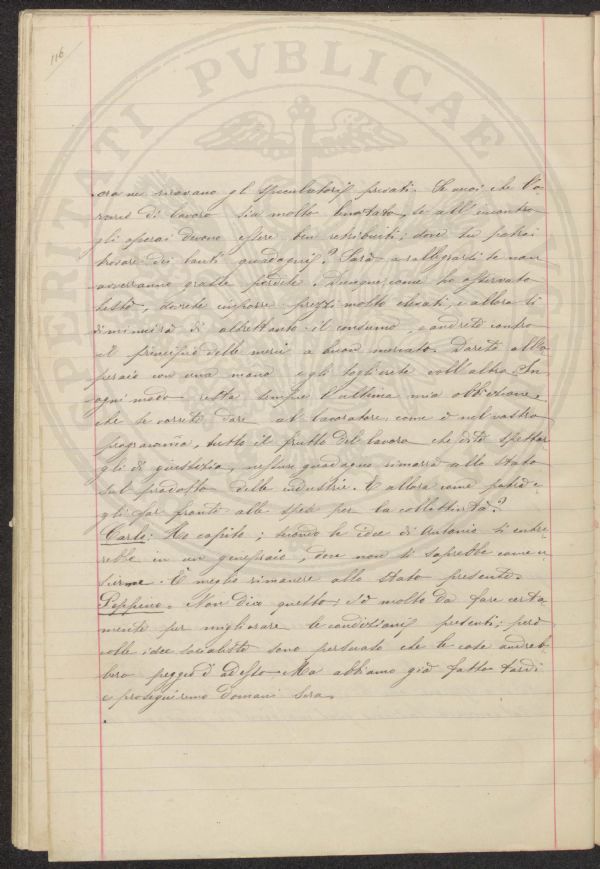 116
PERTATI PVBLICAE
ora ne ricavano gl' speculatori privati. Se vuoi che l'o-
rario di lavoro sia molto limitato, se all'incontro
gli operai devono essere ben retribuiti; dove tu potrai
trovare dei tanti guadagni? Sarà a rallegrarsi se non
avverranno grasse perdite. Dunque, come ho osservato
testè, dovrete imporre prezzi molto elevati, e allora si
diminuirà di altrettanto il consumo, e andrete contro
il principio delle merci a buon mercato. Darete all'o-
peraio con una mano e gli toglierete coll'altra. In
ogni modo resta sempre l'ultima mia obbiezione,
che se vorrete dare al lavoratore, come è nel vostro
programma, tutto il frutto del lavoro che dite spettar-
gli di giustizia, nessun guadagno rimarrà allo stato
sul prodotto delle industrie. E allora come potrà e-
gli far fronte alle spese per la collettività?
Carlo: Ho capito; secondo le idee di Antonio si entre-
rebbe in un ginepraio, dove non si saprebbe come u-
scirne. È meglio rimanere allo stato presente.
Peppino. Non dico questo; v'è molto da fare certa
mente per migliorare le condizioni presenti; però
colle idee socialiste sono persuaso che le cose andreb-
bero peggio d'adesso. Ma abbiamo già fatto tardi
e proseguiremo domani sera.